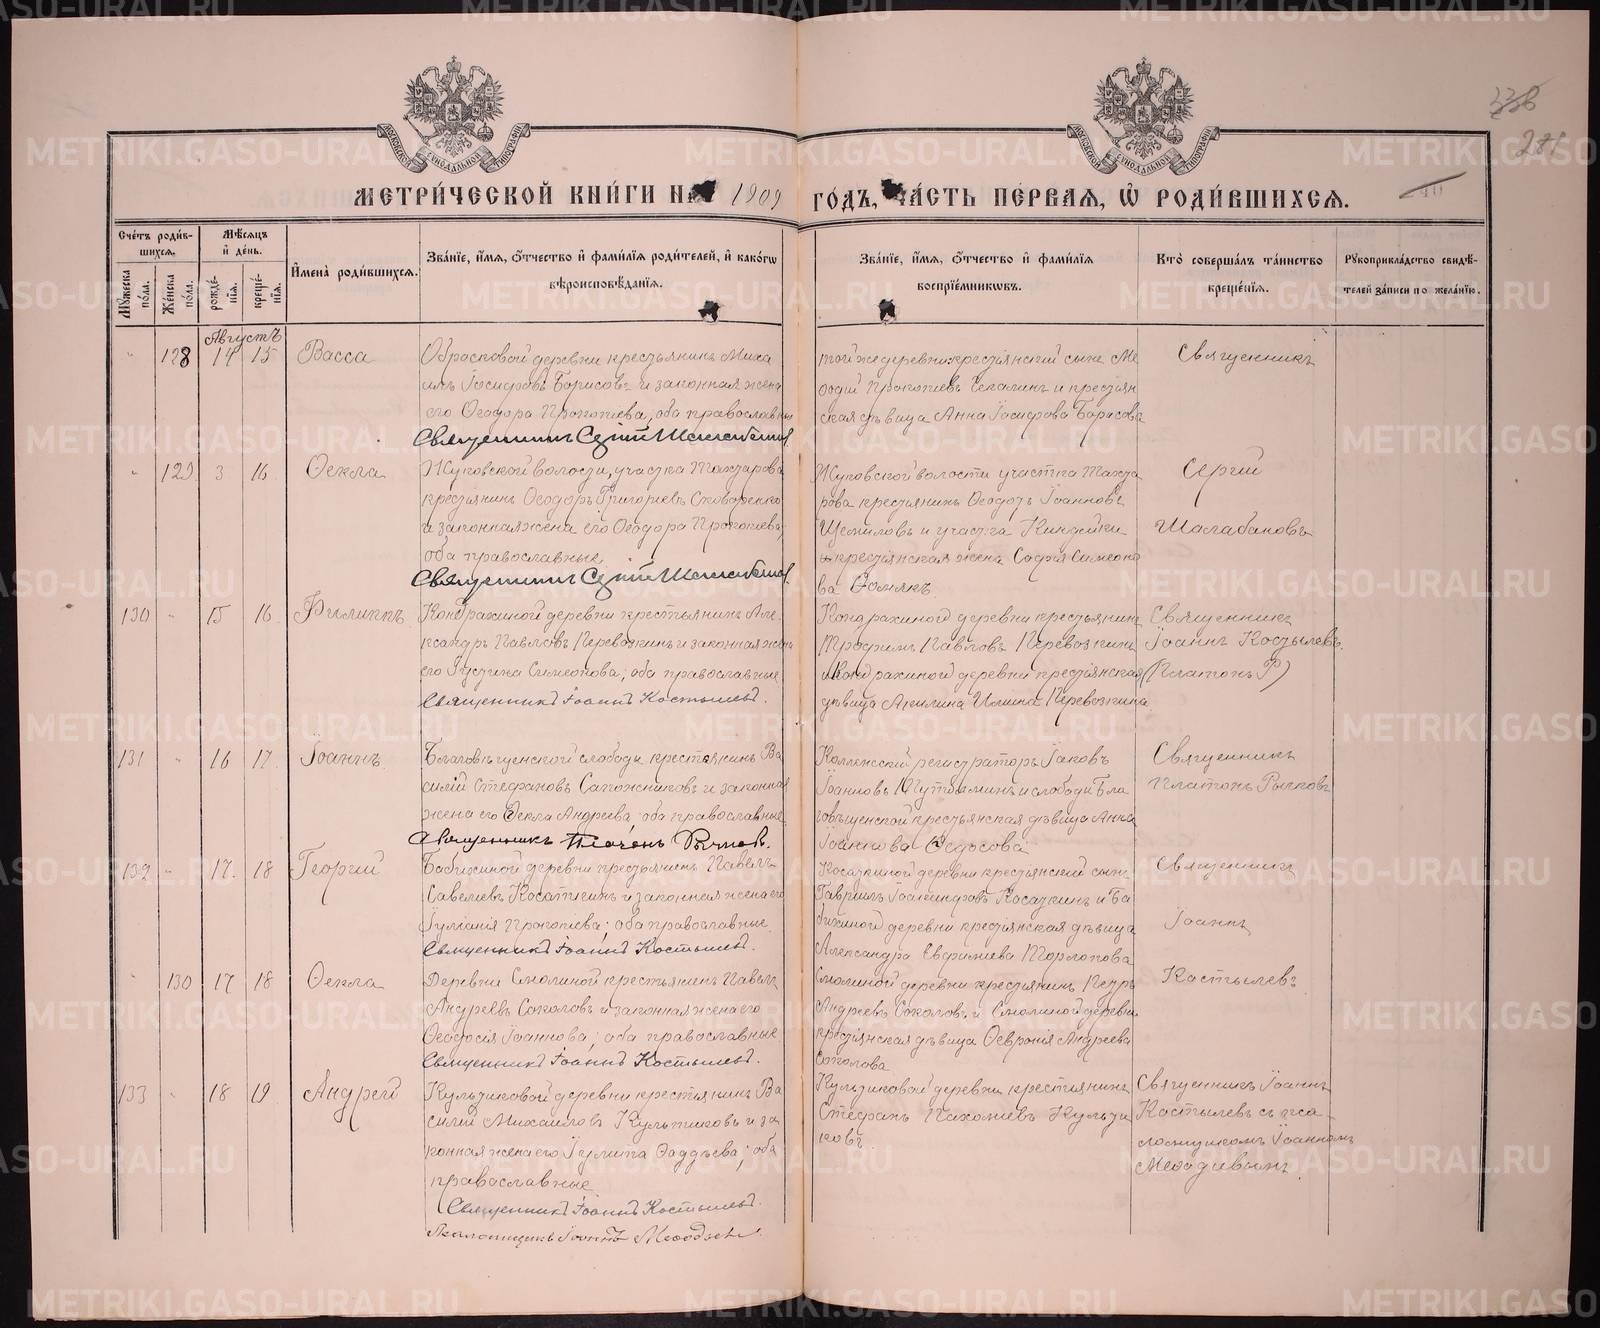 МЕТРИ́ЧЕСКОЙ КНИ́ГИ НА 1909 ГОДЪ, ЧА́СТЬ ПЕ́РВАЯ, Ѽ РОДИ́ВШИХСЯ.
Сче́тъ роди́в-
шихся.
Мѣ́сяцъ
и҆ де́нь.
Му́жеска по́ла.
Же́нска по́ла.
рожде́-
нїя.
креще́-
нїя.
И҆мена̀ роди́вшихся.
Зва́нїе, и҆́мя, ѻ҆́тчество и҆ фами́лїя роди́телей, и҆ како́гѡ
вѣроисповѣ́данїя.
Зва́нїе, и҆́мя, ѻ҆́тчество и҆ фами́лїя
воспрїе́мниковъ.
Кто̀ соверша́лъ та́инство
креще́нїя.
Рꙋкоприкла́дство свидѣ́-
телей за́писи по жела́нїю.
Августъ
128 14 15 Васса
деревни крестьянинъ Миха
илъ Іосифовъ Борисовъ и законная жена
его Ѳеодора Прокопіева, оба православны
Священникъ Сергій Шалабановъ
той же деревни крестьянскій сынъ Ме
ѳодій Прокопіевъ и крестьян
ская дѣвица Анна Іосифова Борисова
Священникъ
129 3 16 Ѳекла
Жуковской волости, участка
крестьянинъ Ѳеодоръ Григорьевъ Сковоренко
и законная жена его Ѳеодора Прокопіева,
оба православные
Священникъ Сергій Шалабановъ
Жуковской волости участка
крестьянинъ Ѳеодотъ Іоанновъ
Щемиловъ и участка
крестьянская жена Софія Симеоно
ва
Сергій
Шалабановъ
130 15 16 Филиппъ
Кондрахиной деревни крестьянинъ Але-
ксандръ Павловъ Перевозкинъ и законная жена
его Іустина Симеонова; оба православные
Священникъ Іоаннъ Костылевъ.
Кондрахиной деревни крестьянинъ
Трофимъ Павловъ Перевозкинъ
и Кондрахиной деревни крестьянская
дѣвица Акилина Ильина Перевозкина
Священникъ
Іоаннъ Костылевъ.
(Платонъ Р)
131 16 17 Іоаннъ
Благовѣщенской слободы крестьянинъ Ва
силій Стефановъ Сапожниковъ и законная
жена его Ѳекла Андреева; оба православные
Священникъ Платонъ Рычковъ.
Коллежскій регистраторъ Іаковъ
Іоанновъ Путиминъ и слободы Бла
говѣщенской крестьянская дѣвица Анна
Іоаннова Ѳедосова
Священникъ
Платонъ Рычковъ
132 17 18 Георгій
Бабихиной деревни крестьянинъ Павелъ
Савельевъ Косаткинъ и законная жена его
Іуліанія Прокопіева; оба православные.
Священникъ Іоаннъ Костылевъ.
деревни крестьянскій сынъ
Гавріилъ Косаткинъ и Ба
бихиной деревни крестьянская дѣвица
Александра Евфиміева Торлопова
Священникъ
Іоаннъ
130 17 18 Ѳекла
Деревни Смолиной крестьянинъ Павелъ
Андреевъ Соколовъ и законная жена его
Ѳеодосія Іоаннова; оба православные
Священникъ Іоаннъ Костылевъ.
Смолиной деревни крестьянинъ Петръ
Андреевъ Соколовъ и Смолиной деревни
крестьянская дѣвица Ѳевронія Андреева
Соколова
Костылевъ
133 18 19 Андрей
Культиковой деревни крестьянинъ Ва
силій Михаиловъ Культиковъ и за
конная жена его Іулита Ѳаддѣева; оба
православные
Священникъ Іоаннъ Костылевъ.
Псаломщикъ Іоаннъ Меѳодьевъ.
Культиковой деревни крестьянинъ
Стефанъ Пахомьевъ Культи
ковъ
Священникъ Іоаннъ
Костылевъ съ пса-
ломщикомъ Іоанномъ
Меѳодьевымъ
METRIKI.GASO-URAL.RU